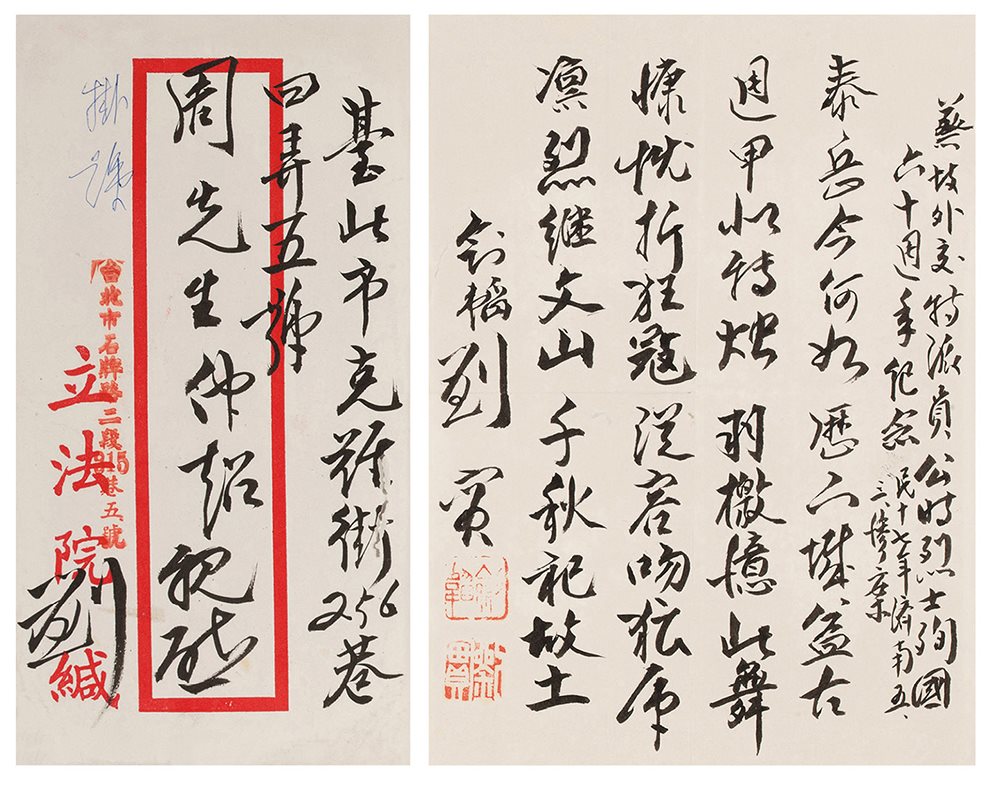 臺北市克難街256巷
四弄五號
周先生仲超親啟
掛號
台北市石牌路二段315巷五號
立法院劉緘
蔡故外交特派員公時烈士殉國
六十週年紀念 民十七年濟南五、
三慘案
泰岳今何如 歷下城益古
週甲似轉烛 羽檄憶此舞
慷慨折狂寇 從容吻猛虎
凛烈继文山 千秋祀故土
劍韜劉实